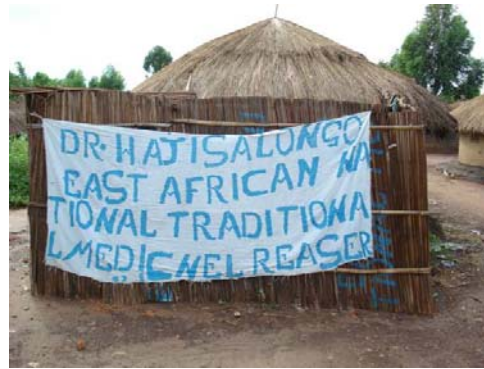 DR. HAJI SALONGO
EAST AFRICAN NA
TIONAL TRADITIONA
L MEDICNEL REASER